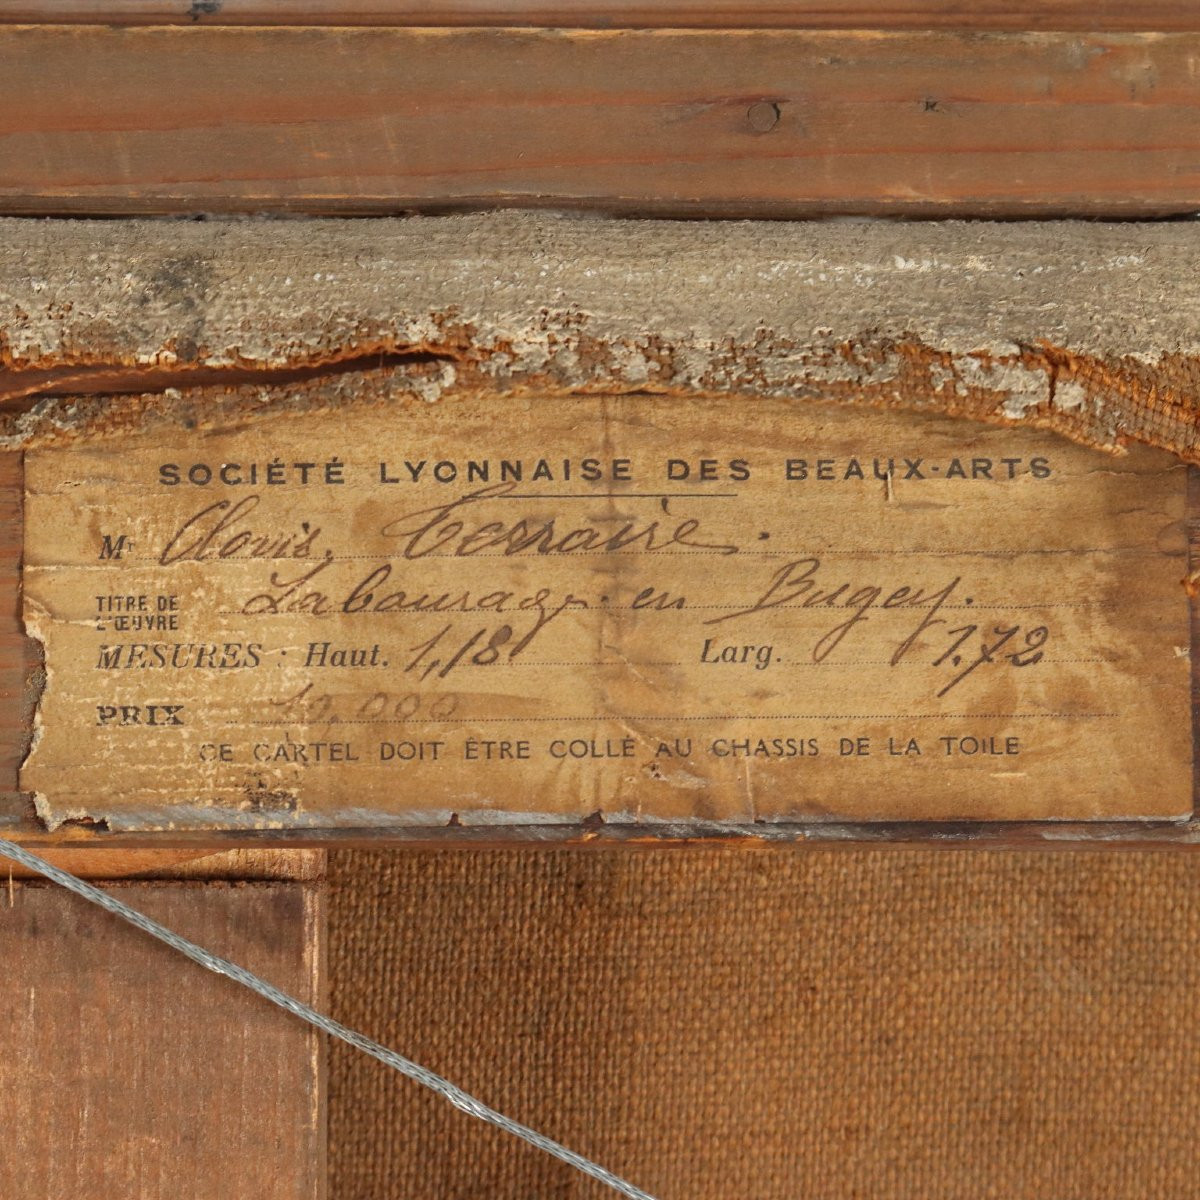 SOCIÉTÉ LYONNAISE DES BEAUX-ARTS
Mr Clovis. Terraire.
TITRE DE L'ŒUVRE Labourage en Bugey.
MESURES : Haut. 1,18 Larg. 1.72
PRIX 10.000
CE CARTEL DOIT ÊTRE COLLÉ AU CHASSIS DE LA TOILE